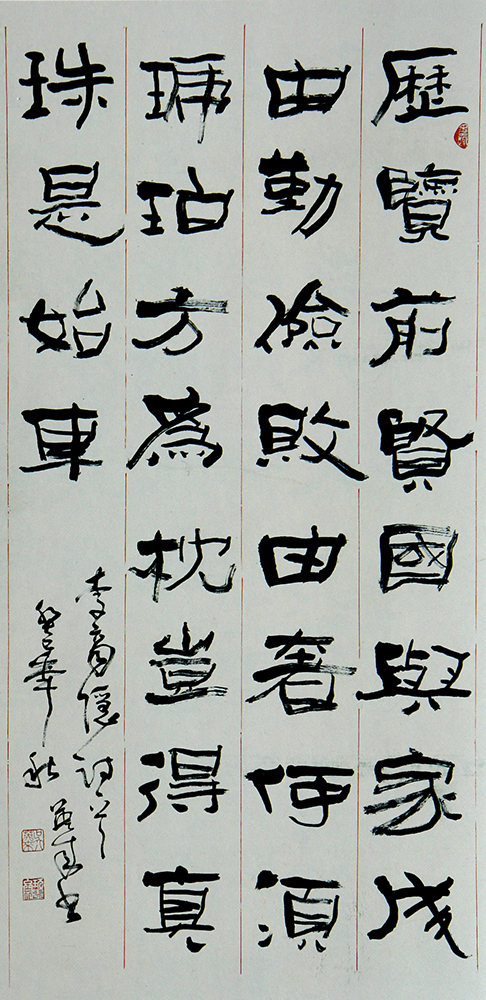 歷覽前賢國與家成
由勤儉敗由奢何須
琥珀方為枕豈得真
珠是始車
李商隱詩
癸巳年秋
書